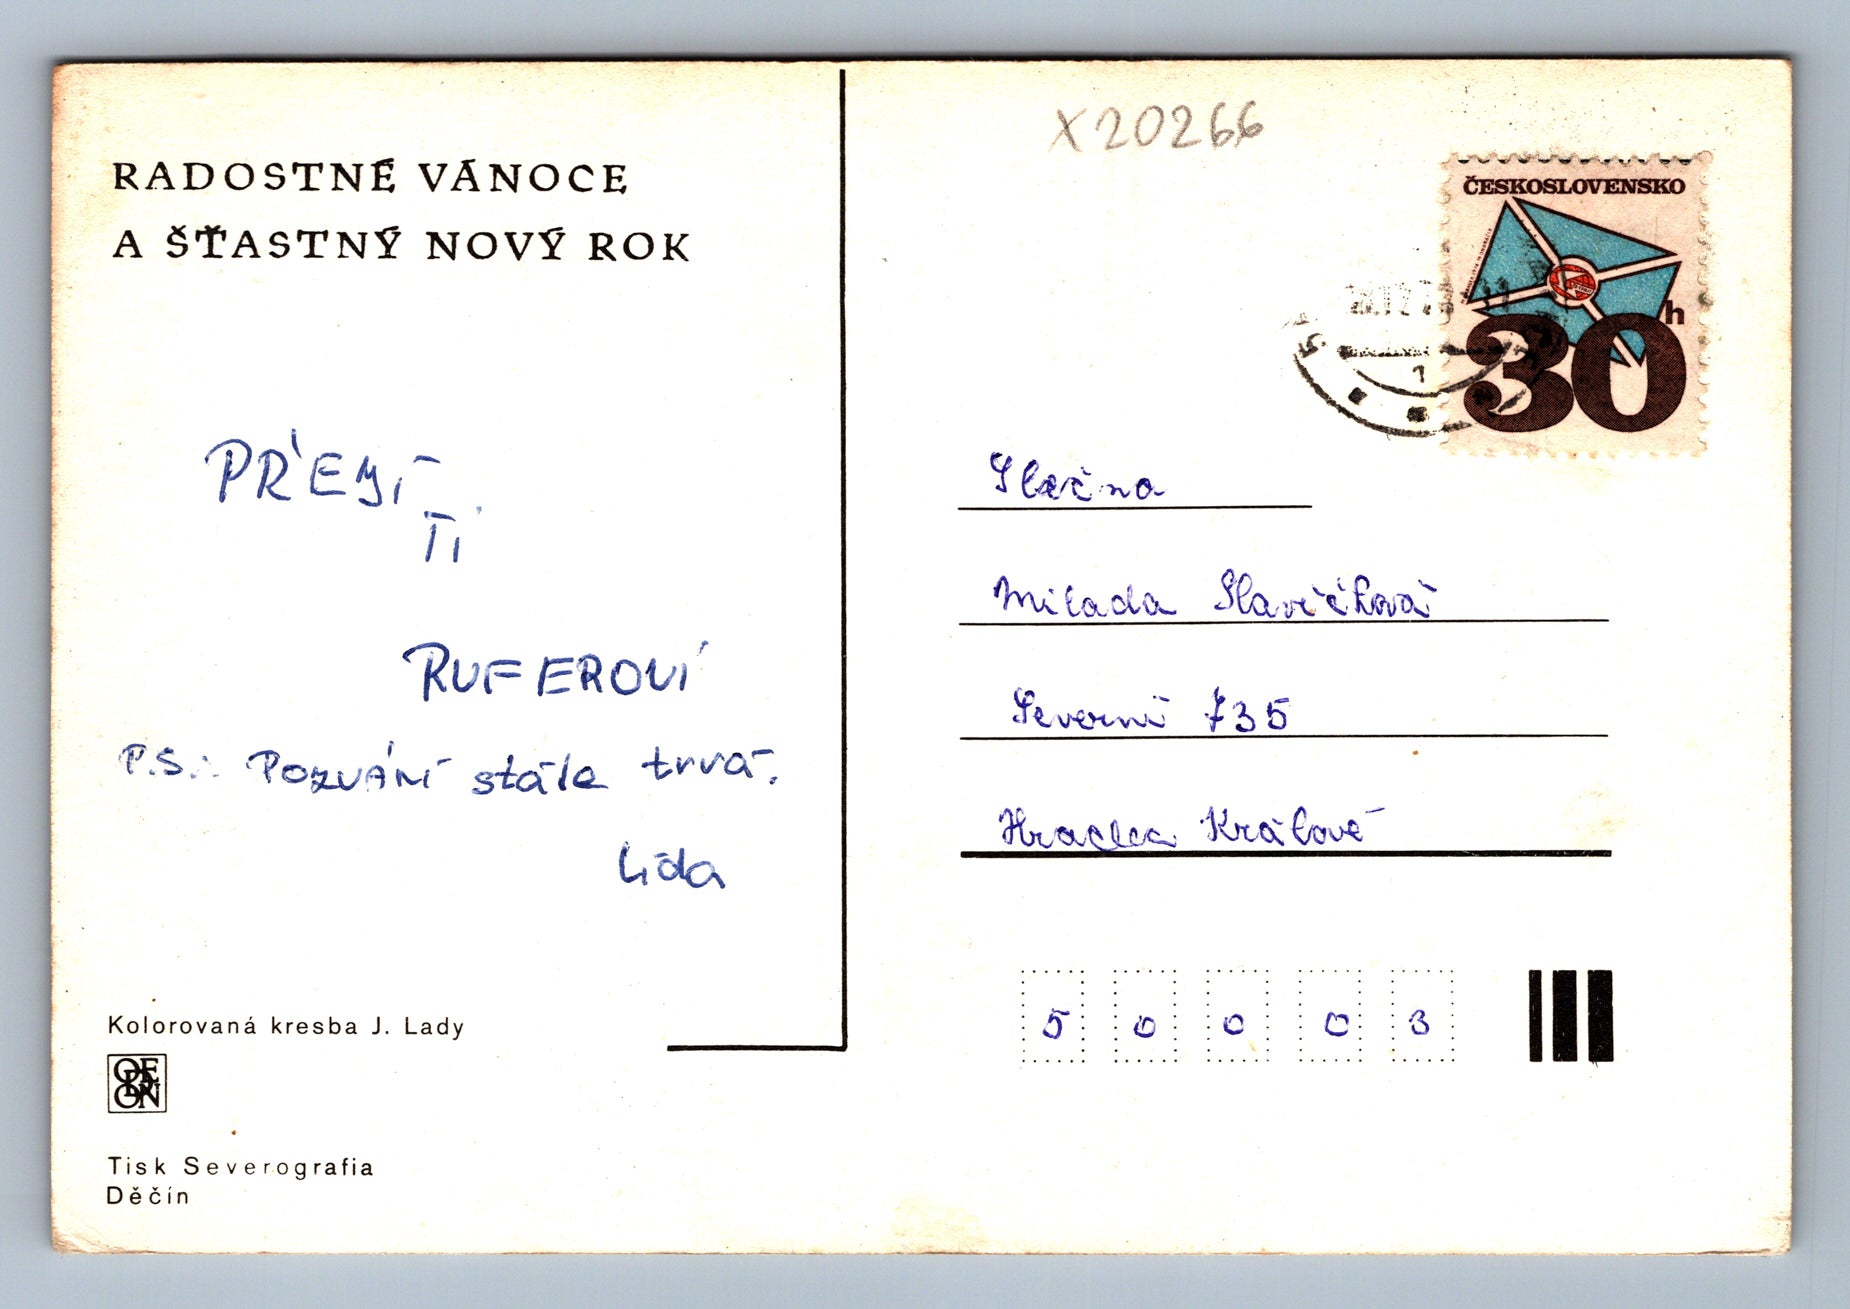 RADOSTNÉ VÁNOCE
A ŠŤASTNÝ NOVÝ ROK
PŘEJÍ
TI
RUFEROVÍ
P.S.: POZVÁNÍ stále trvá.
Lída
Kolorovaná kresba J. Lady
ODEON
Tisk Severografia
Děčín
X20266
ČESKOSLOVENSKO
30h
1
Slečna
Milada Slavíčková
Severní 735
Hradec Králové
5 0 0 0 3